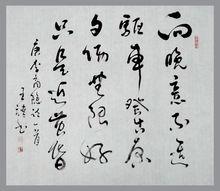 向晚意不適
驅車登古原
夕陽無限好
只是近黃昏
唐李商隱詩一首
王